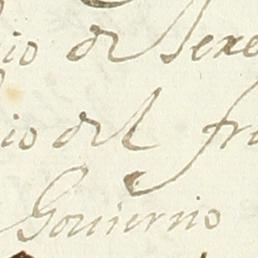 io de Sere
io del fru
Gouierno